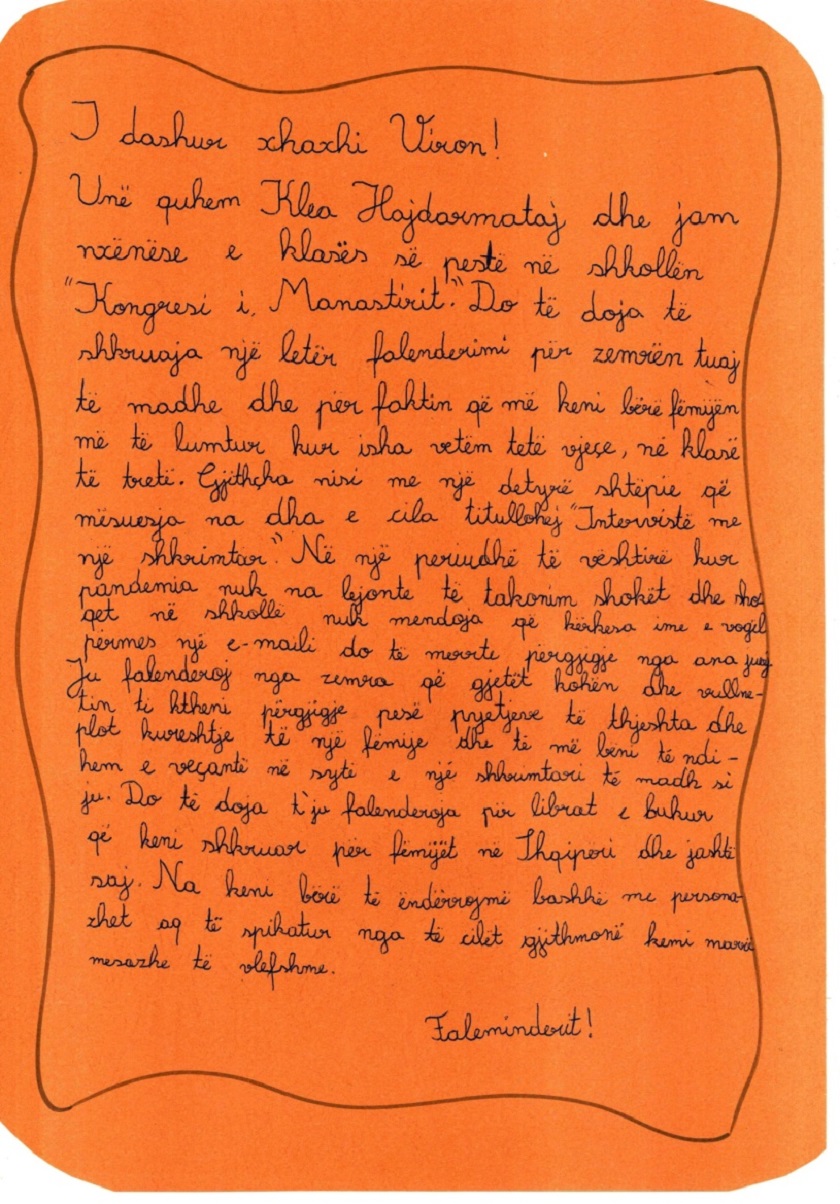 I dashur xhaxhi Viron!
Unë quhem Klea Hajdarmataj dhe jam
nxënëse e klasës së pestë në shkollën
"Kongresi i Manastirit". Do të doja të
shkruaja një letër falenderimi për zemrën tuaj
të madhe dhe për faktin që më keni bërë fëmijën
më të lumtur kur isha vetëm tetë vjeçe, në klasë
të tretë. Gjithçka nisi me një detyrë shtëpie që
mësuesja na dha e cila titullohej "Intervistë me
një shkrimtar". Në një periudhë të vështirë kur
pandemia nuk na lejonte të takonim shokët dhe sho
qet në shkollë nuk mendoja që kërkesa ime e vogël
përmes një e-maili do të merrte përgjigje nga ana juaj
Ju falenderoj nga zemra që gjetët kohën dhe vullne-
tin ti ktheni përgjigje pesë pyetjeve të thjeshta dhe
plot kureshtje të një fëmije dhe të më bëni të ndi-
hem e veçantë në sytë e një shkrimtari të madh si
ju. Do të doja t'ju falenderoja për librat e bukur
që keni shkruar për fëmijët në Shqipëri dhe jashtë
saj. Na keni bërë të ëndërrojmë bashkë me persona-
zhet aq të spikatur nga të cilët gjithmonë kemi marrë
mesazhe të vlefshme.
Faleminderit!